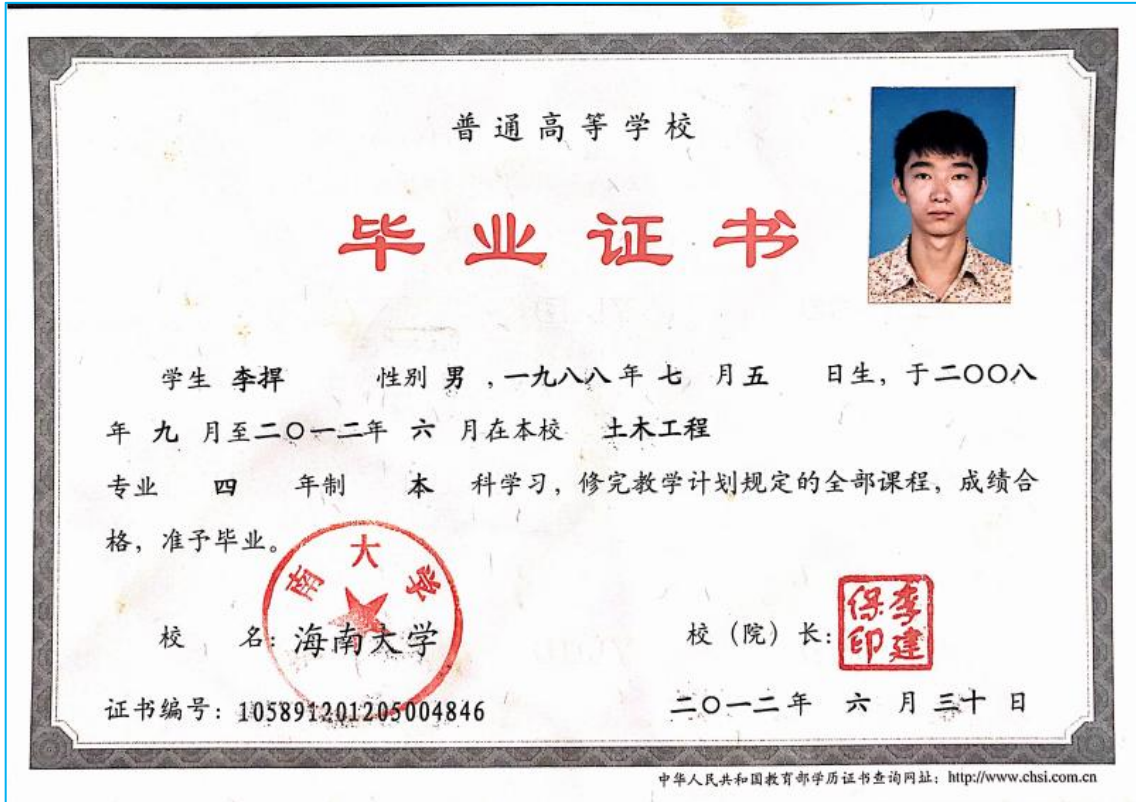 普通高等学校
毕业证书
学生 李捍 性别 男 ，一九八八年 七 月五 日生，于二〇〇八
年 九 月至二〇一二年 六 月在本校 土木工程
专业 四 年制 本 科学习，修完教学计划规定的全部课程，成绩合
格，准予毕业。
南大学
校 名：海南大学
校（院）长：
李建保印
证书编号：105891201205004846
二〇一二年 六 月 三十 日
中华人民共和国教育部学历证书查询网址：http://www.chsi.com.cn